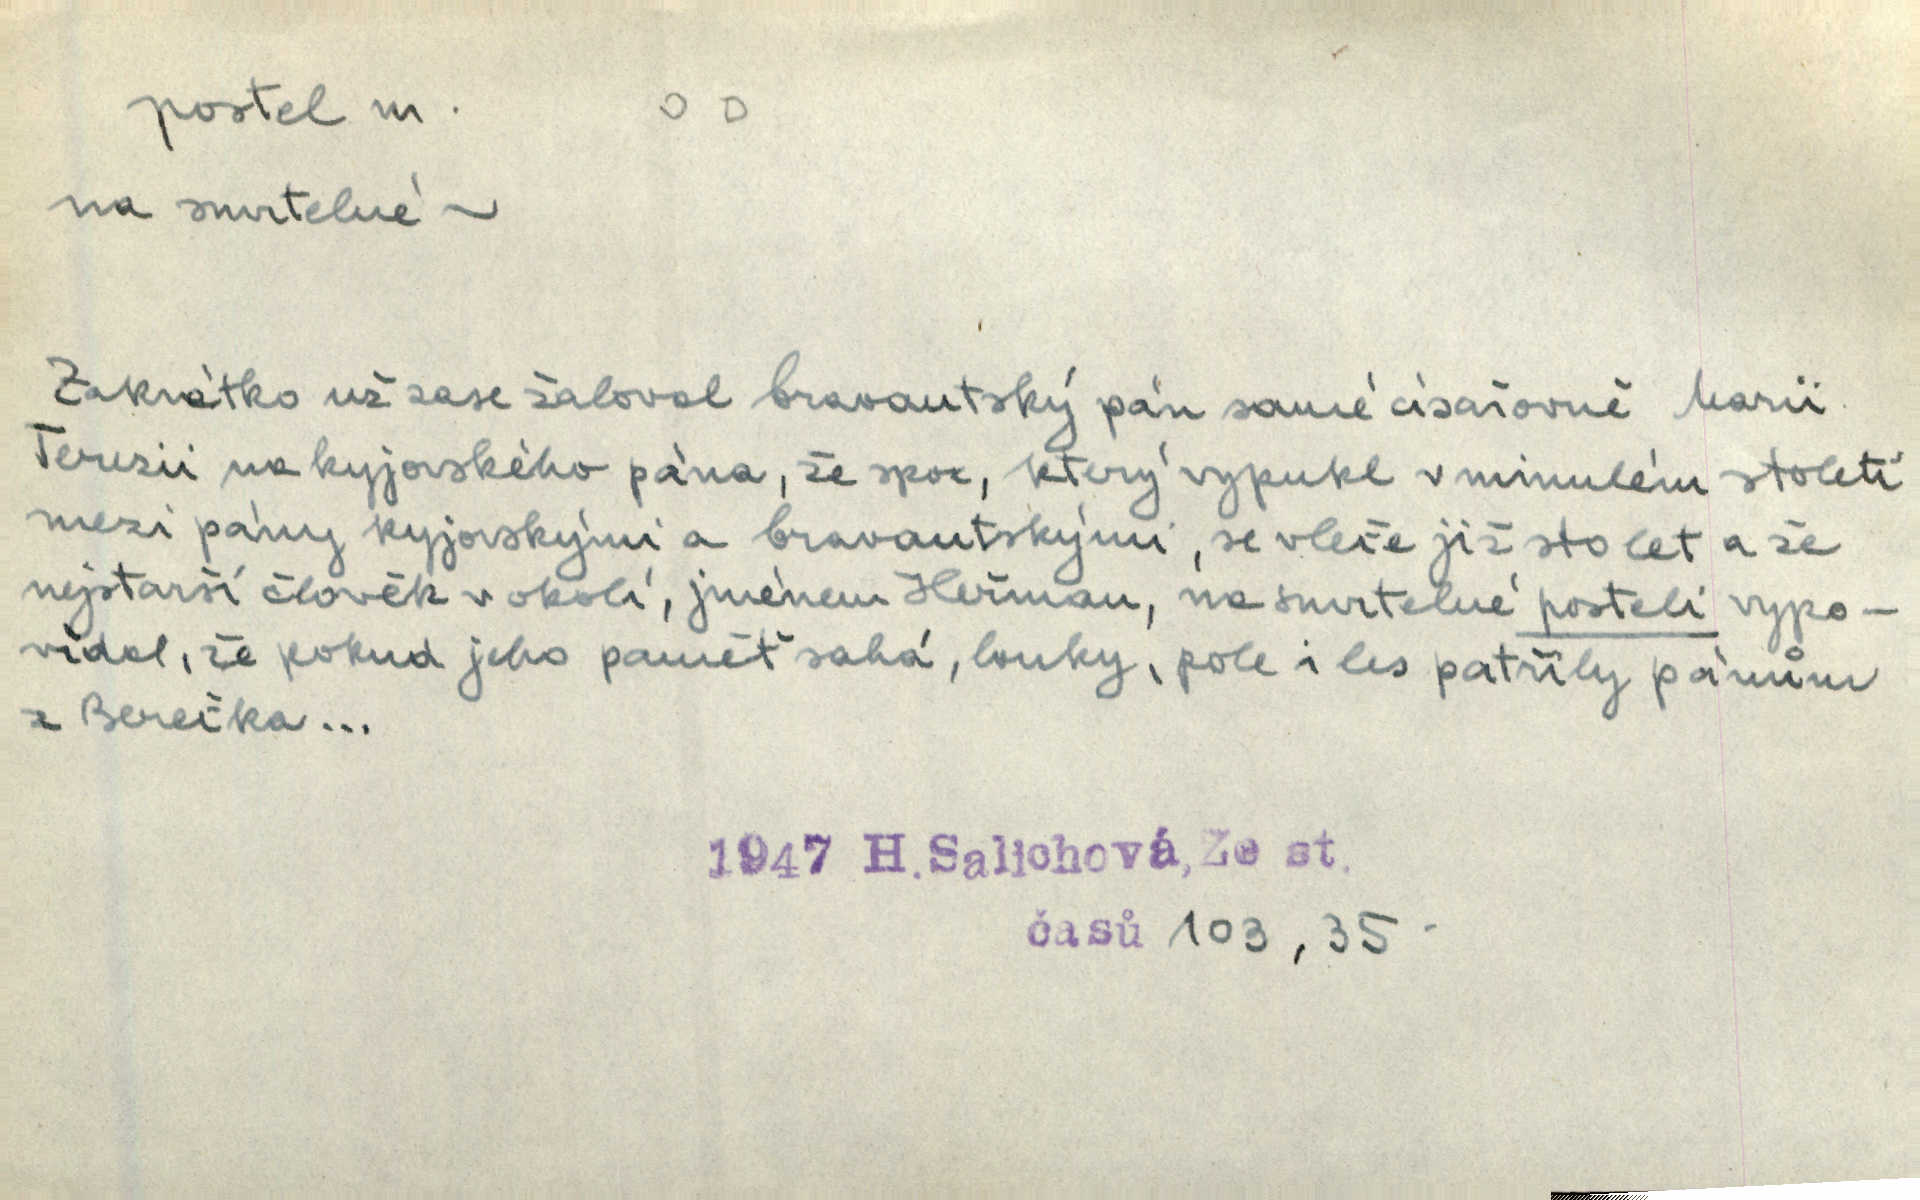 postel m. O O
na smrtelné ~
Zakrátko už zase žaloval bravantský pán samé císařovně Marii
Terezii na kyjovského pána, že spor, který vypukl v minulém století
mezi pány kyjovskými a bravantskými, se vleče již sto let a že
nejstarší člověk v okolí, jménem Heřman, na smrtelné posteli vypo-
vídal, že pokud jeho paměť sahá, louky, pole i les patřily pánům
z Berečka...
1947 H.Salichová, Ze st.
časů 103, 35 -